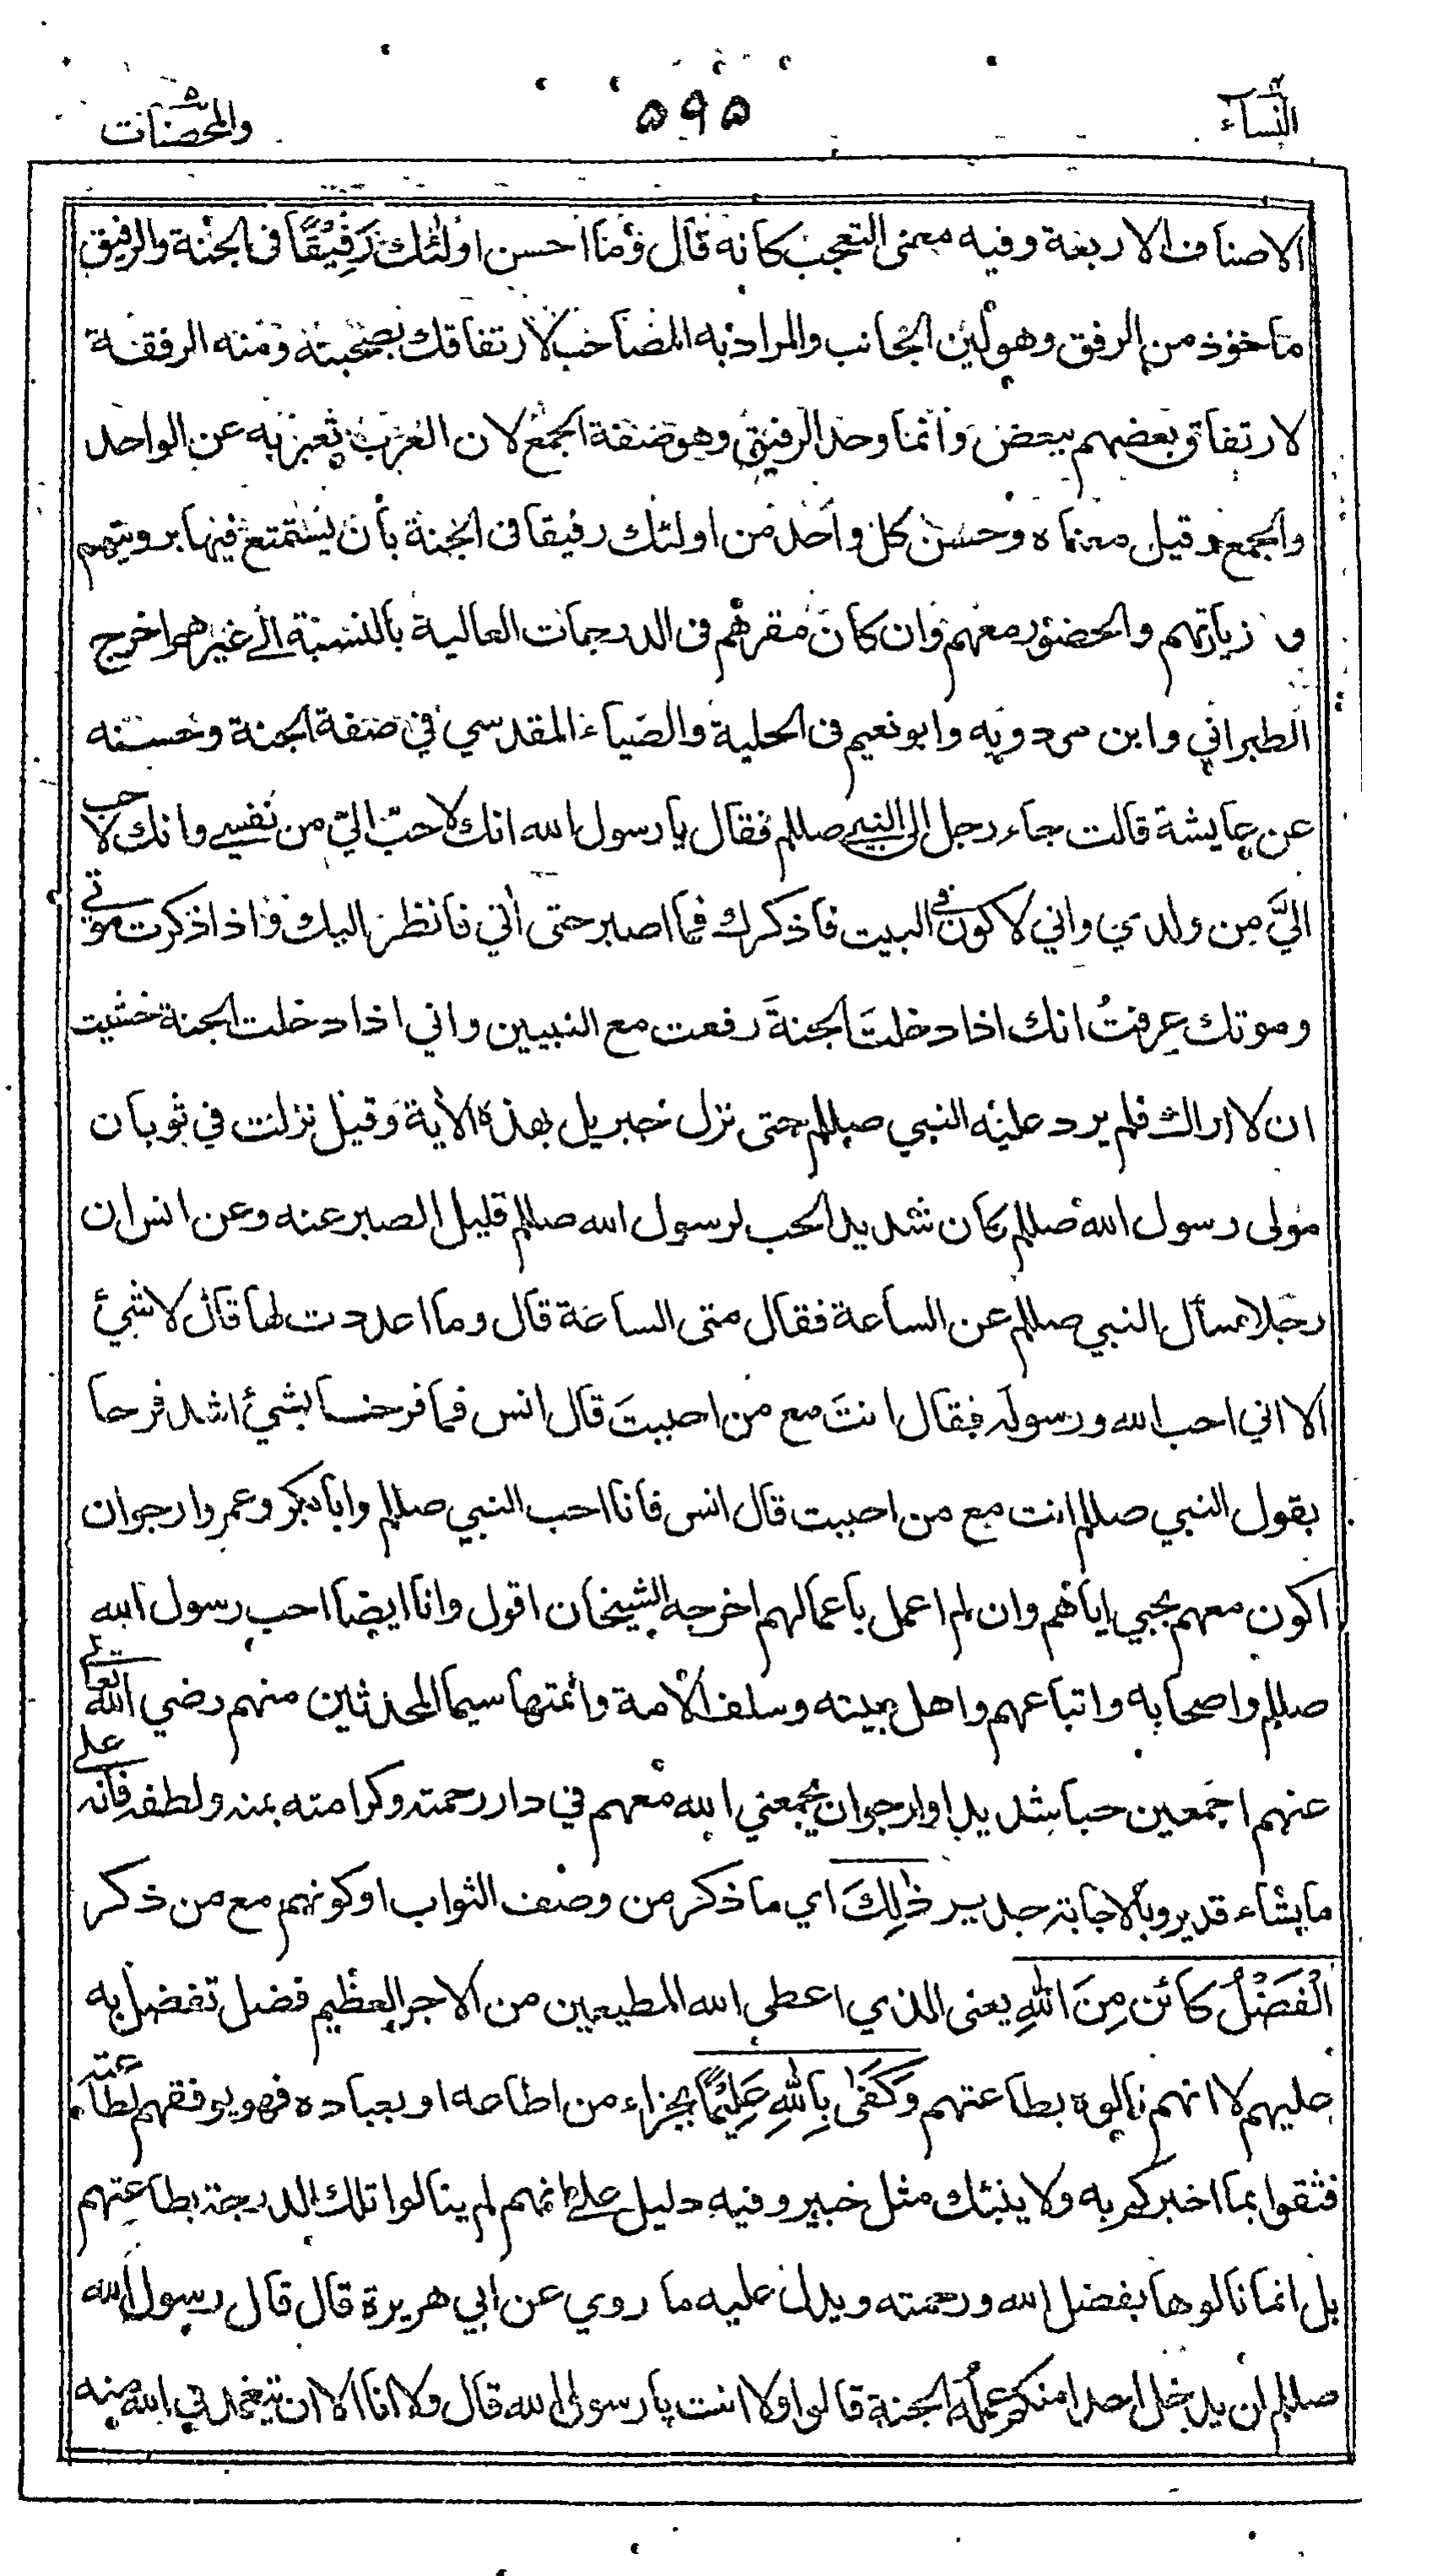 النساء ٥٩٥ والمحصنات
الاصناف الاربعة وفيه معنى التعجب كانه قال وما احسن اولئك رَفِيْقًا في الجنة والرفيق
ماخوذ من الرفق وهو لين الجانب والمراد به المصاحب لارتفاقك بصحبته ومنه الرفقة
لارتفاق بعضهم ببعض وانما وحد الرفيق وهو صفة الجمع لان العرب تعبر به عن الواحد
والجمع وقيل معناه وحسن كل واحد من اولئك رفيقا في الجنة بأن يستمتع فيها برويتهم
و زيارتهم والحضور معهم وان كان مقرهم في الدرجات العالية بالنسبة الے غيرهم واخرج
الطبراني وابن مردويه وابونعيم في الحلية والضياء المقدسي في صفة الجنة وحسنه
عن عايشة قالت جاء رجل الى النبي صللم فقال يا رسول الله انك لاحبّ اليّ من نفسے وانك لاحب
اليَّ من ولدي واني لاكون في البيت فاذكرك فما اصبر حتى أتي فانظر اليك واذا ذكرت موتي
وموتك عرفتُ انك اذا دخلتَ الجنةَ رفعت مع النبيين واني اذا دخلت الجنة خشيت
ان لا اراك فلم يرد عليه النبي صللم حتى نزل جبريل بهذه الأية وقيل نزلت في ثوبان
مولى رسول الله صللم كان شديد الحب لرسول الله صللم قليل الصبر عنه وعن انس ان
رجلا سأل النبي صللم عن الساعة فقال متى الساعة قال وما اعددت لها قال لا شيئ
الا اني احب الله ورسوله فقال انتَ مع من احببتَ قال انس فما فرحنا بشيئ اشد فرحا
بقول النبي صللم انت مع من احببت قال انس فانا احب النبي صللم وابا بكر وعمر وارجو ان
اكون معهم بحبي اياهم وان لم اعمل باعمالهم اخرجه الشيخان اقول وانا ايضا احب رسول الله
صللم واصحابه واتباعهم واهل بيته وسلف الأمة وائمتها سيما المحدثين منهم رضي الله تعالى
عنهم اجمعين حبا شديدا وارجو ان يجمعني الله معهم في دار رحمته وكرامته بمنه ولطفه فانه على
ما يشاء قدير وبالاجابة جدير ذٰلِكَ اي ما ذكر من وصف الثواب او كونهم مع من ذكر
الْفَضْلُ كائن مِنَ اللهِ يعنى الذي اعطى الله المطيعين من الاجر العظيم فضل تفضل به
عليهم لا انهم نالوه بطاعتهم وَكَفٰى بِاللهِ عَلِيْمًا بجزاء من اطاعه او بعباده فهو يوفقهم لطاعته
فثقوا بما اخبركم به ولا ينبئك مثل خبير وفيه دليل علے انهم لم ينالوا تلك الدرجة بطاعتهم
بل انما نالوها بفضل الله ورحمته ويدل عليه ما روي عن ابي هريرة قال قال رسول الله
صللم لن يدخل احدا منكم عمله الجنة قالوا ولا انت يا رسول الله قال ولا انا الا ان يتغمدني الله منه